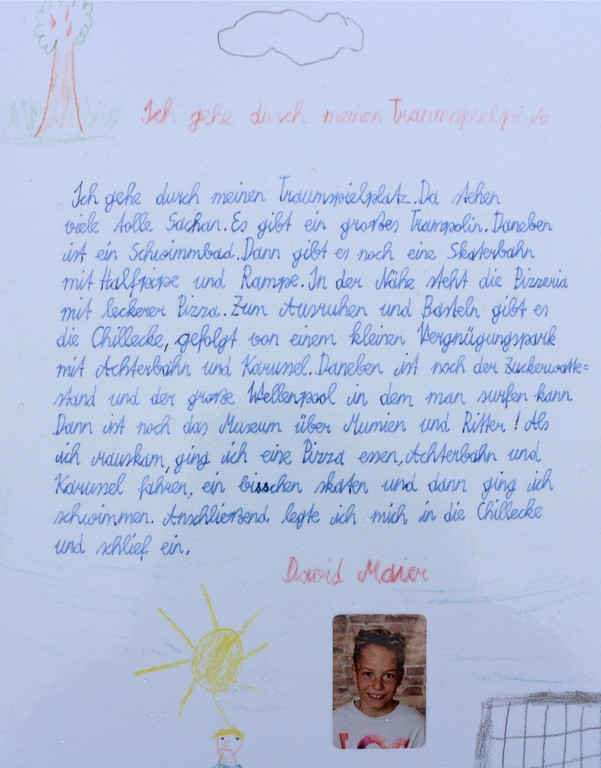 Ich gehe durch meinen Traumspielplatz
Ich gehe durch meinen Traumspielplatz. Da stehen
viele tolle Sachan. Es gibt ein großes Trampolin. Daneben
ist ein Schwimmbad. Dann gibt es noch eine Skaterbahn
mit Halfpipe und Rampe. In der Nähe steht die Pizzeria
mit leckerer Pizza. Zum Ausruhen und Basteln gibt es
die Chillecke, gefolgt von einem kleinen Vergnügungspark
mit Achterbahn und Karussel. Daneben ist noch der Zuckerwatte=
stand und der große Wellenpool in dem man surfen kann.
Dann ist noch das Museum über Mumien und Ritter! Als
ich rauskam, ging ich eine Pizza essen, Achterbahn und
Karussel fahren, ein bisschen skaten und dann ging ich
schwimmen. Anschließend legte ich mich in die Chillecke
und schlief ein.
David Maier